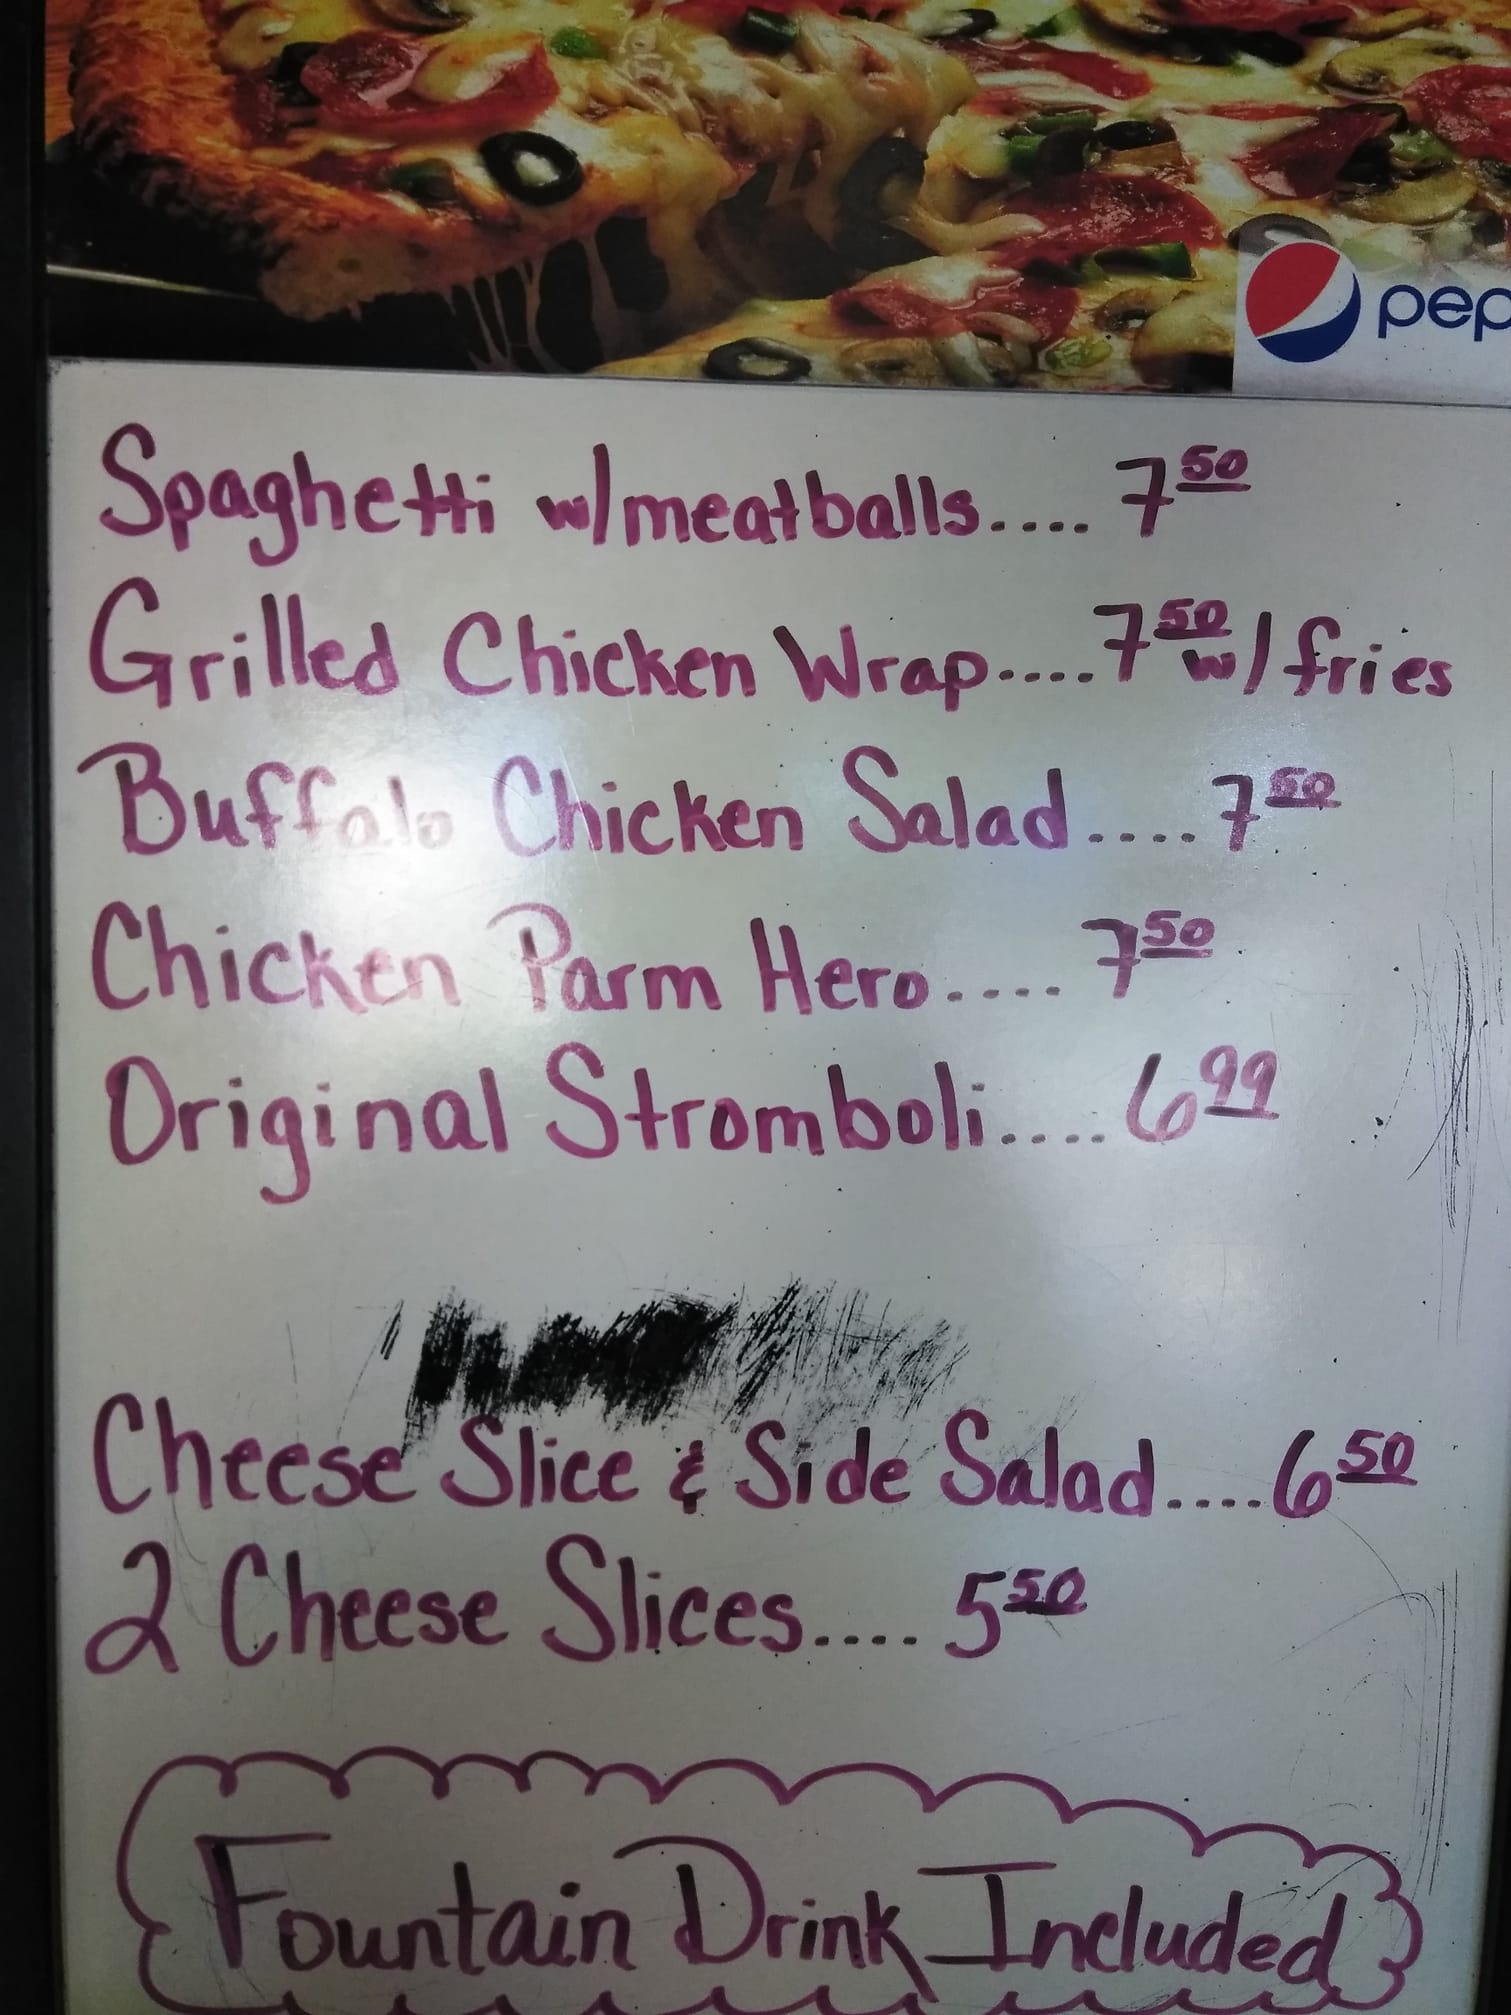 pep
Spaghetti w/meatballs.... 7 50
Grilled Chicken Wrap....7 50 w/ fries
Buffalo Chicken Salad....7 50
Chicken Parm Hero.... 7 50
Original Stromboli.... 6 99
Cheese Slice & Side Salad....6 50
2 Cheese Slices.... 5 50
Fountain Drink Included